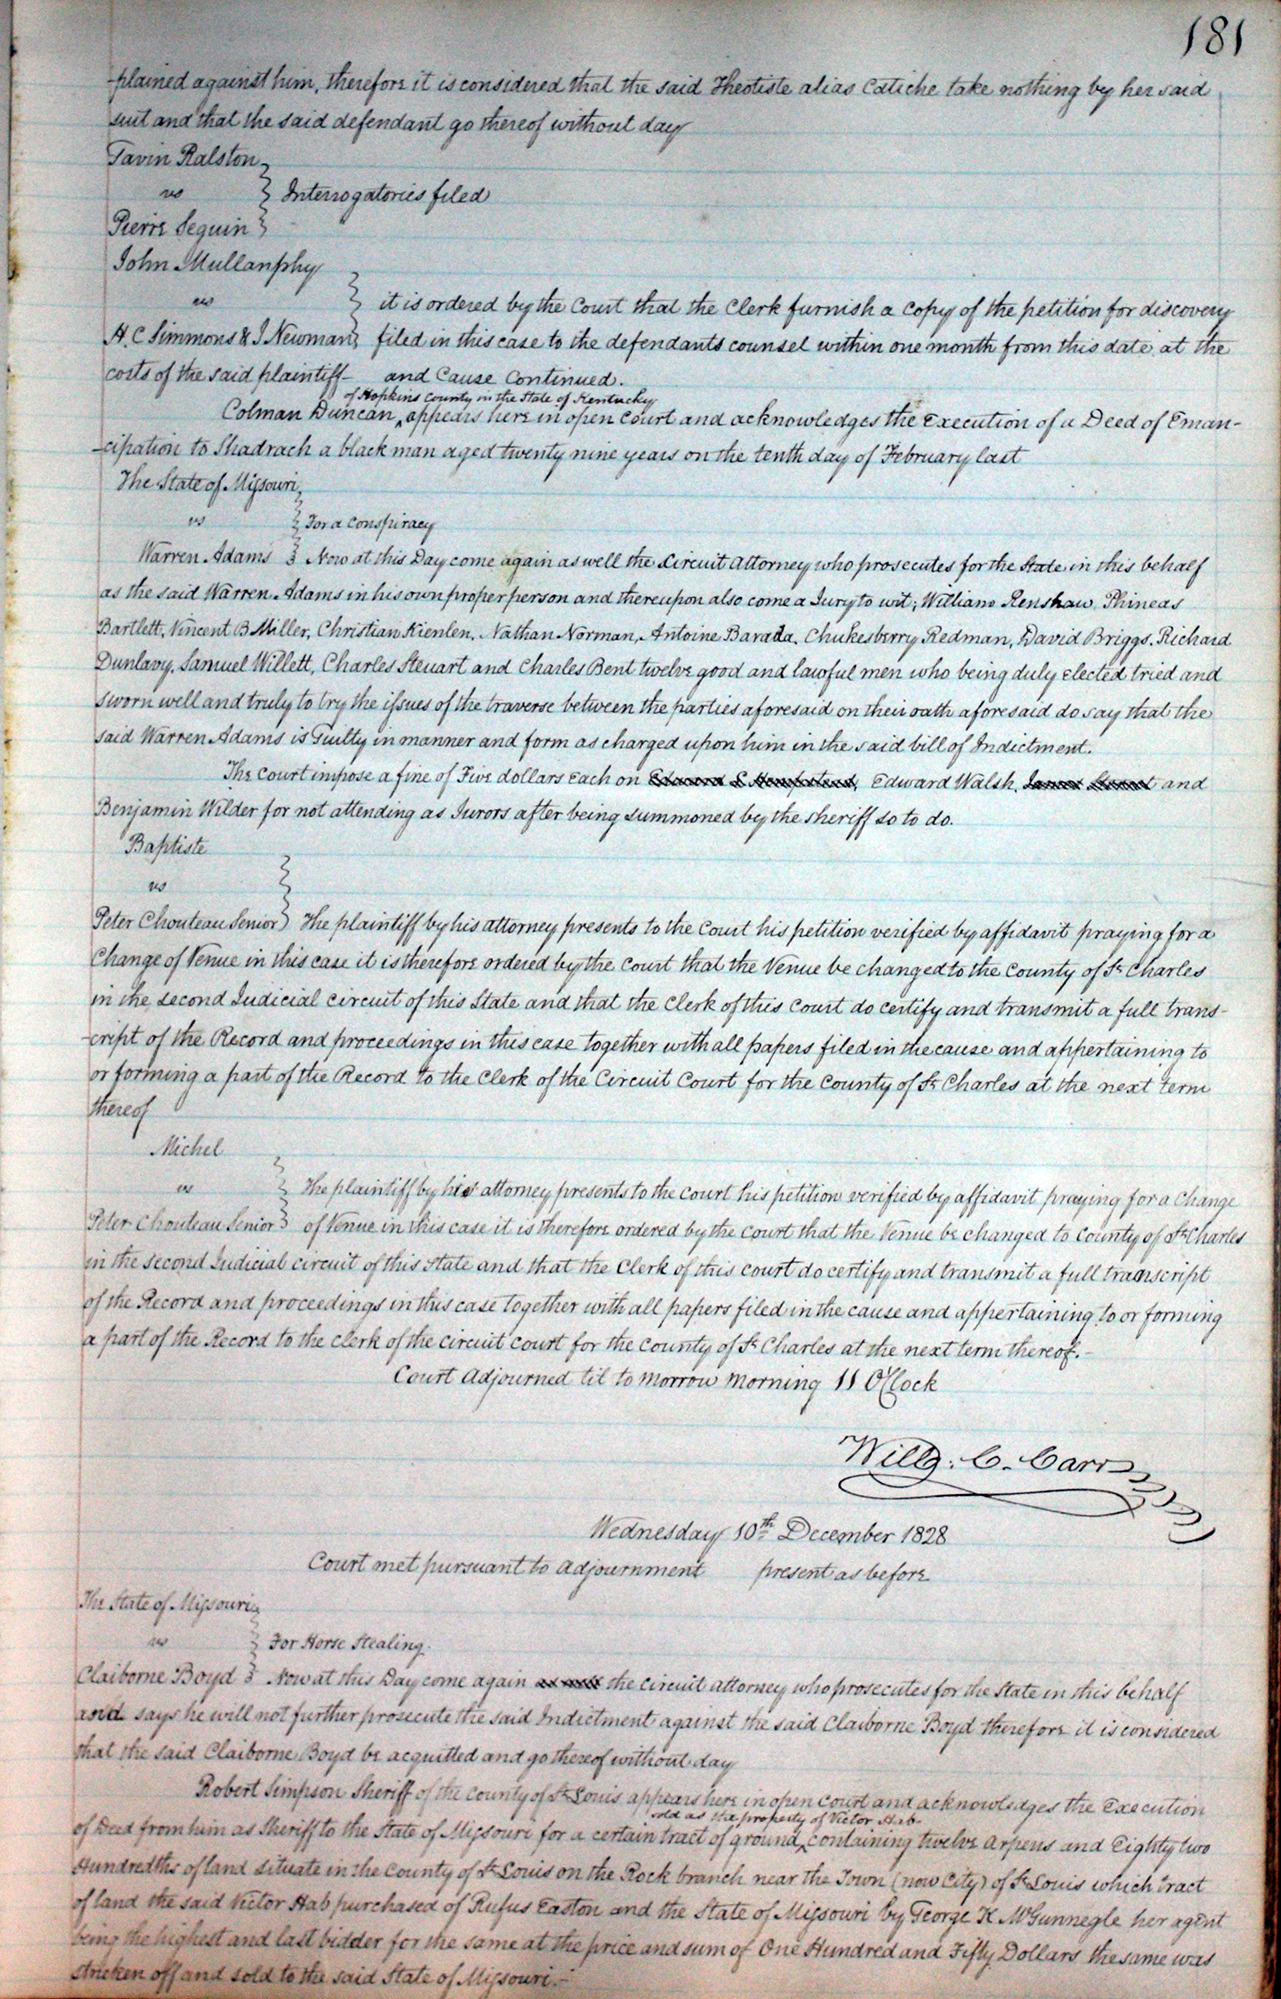 181
-plained against him, therefore it is considered that the said Theotiste alias Catiche take nothing by her said
suit and that the said defendant go thereof without day
Gavin Ralston
vs
Interrogatories filed
Pierre Seguin
John Mullanphy
vs
it is ordered by the Court that the Clerk furnish a copy of the petition for discovery
H. C Simmons & J Newman filed in this case to the defendants counsel within one month from this date at the
costs of the said plaintiff- and Cause Continued.
of Hopkins County in the State of Kentucky
Colman Duncan ^ appears here in open Court and acknowledges the Execution of a Deed of Eman-
-cipation to Shadrach a black man aged twenty nine years on the tenth day of February last
The State of Missouri
vs
For a conspiracy
Warren Adams Now at this Day come again as well the Circuit Attorney who prosecutes for the State in this behalf
as the said Warren Adams in his own proper person and thereupon also come a Jury to wit; William Renshaw, Phineas
Bartlett, Vincent B Miller, Christian Kienlen, Nathan Norman, Antoine Barada, Chukesberry Redman, David Briggs, Richard
Dunlavy, Samuel Willett, Charles Steuart and Charles Bent twelve good and lawful men who being duly Elected tried and
sworn well and truly to try the issues of the traverse between the parties aforesaid on their oath aforesaid do say that the
said Warren Adams is Guilty in manner and form as charged upon him in the said bill of Indictment.
The Court impose a fine of Five dollars Each on Edward Walsh, and
Benjamin Wilder for not attending as Jurors after being summoned by the sheriff so to do.
Baptiste
vs
Peter Chouteau Senior The plaintiff by his attorney presents to the Court his petition verified by affidavit praying for a
Change of Venue in this case it is therefore ordered by the Court that the Venue be changed to the County of St Charles
in the second Judicial circuit of this State and that the Clerk of this Court do certify and transmit a full trans-
-cript of the Record and proceedings in this case together with all papers filed in the cause and appertaining to
or forming a part of the Record to the Clerk of the Circuit Court for the County of St Charles at the next term
thereof
Michel
vs
The plaintiff by his attorney presents to the Court his petition verified by affidavit praying for a Change
Peter Chouteau Senior of Venue in this case it is therefore ordered by the Court that the Venue be changed to County of St Charles
in the second Judicial circuit of this State and that the Clerk of this court do certify and transmit a full transcript
of the Record and proceedings in this case together with all papers filed in the cause and appertaining to or forming
a part of the Record to the Clerk of the Circuit Court for the County of St Charles at the next term thereof.-
Court Adjourned til to morrow morning 11 O'Clock
Will. C. Carr
Wednesday 10th December 1828
Court met pursuant to adjournment present as before
The State of Missouri
vs
For Horse Stealing.
Claiborne Boyd Now at this Day come again as well the Circuit attorney who prosecutes for the State in this behalf
and says he will not further prosecute the said Indictment against the said Claiborne Boyd therefore it is considered
that the said Claiborne Boyd be acquitted and go thereof without day
Robert Simpson Sheriff of the County of St Louis appears here in open Court and acknowledges the Execution
sold as the property of Victor Hab
of Deed from him as Sheriff to the State of Missouri for a certain tract of ground ^ containing twelve arpens and Eighty two
Hundredths of land situate in the County of St Louis on the Rock branch near the Town (now City) of St Louis which tract
of land the said Victor Hab purchased of Rufus Easton and the State of Missouri by George K McGunnegle her agent
being the highest and last bidder for the same at the price and sum of One Hundred and Fifty Dollars the same was
stricken off and sold to the said State of Missouri.-